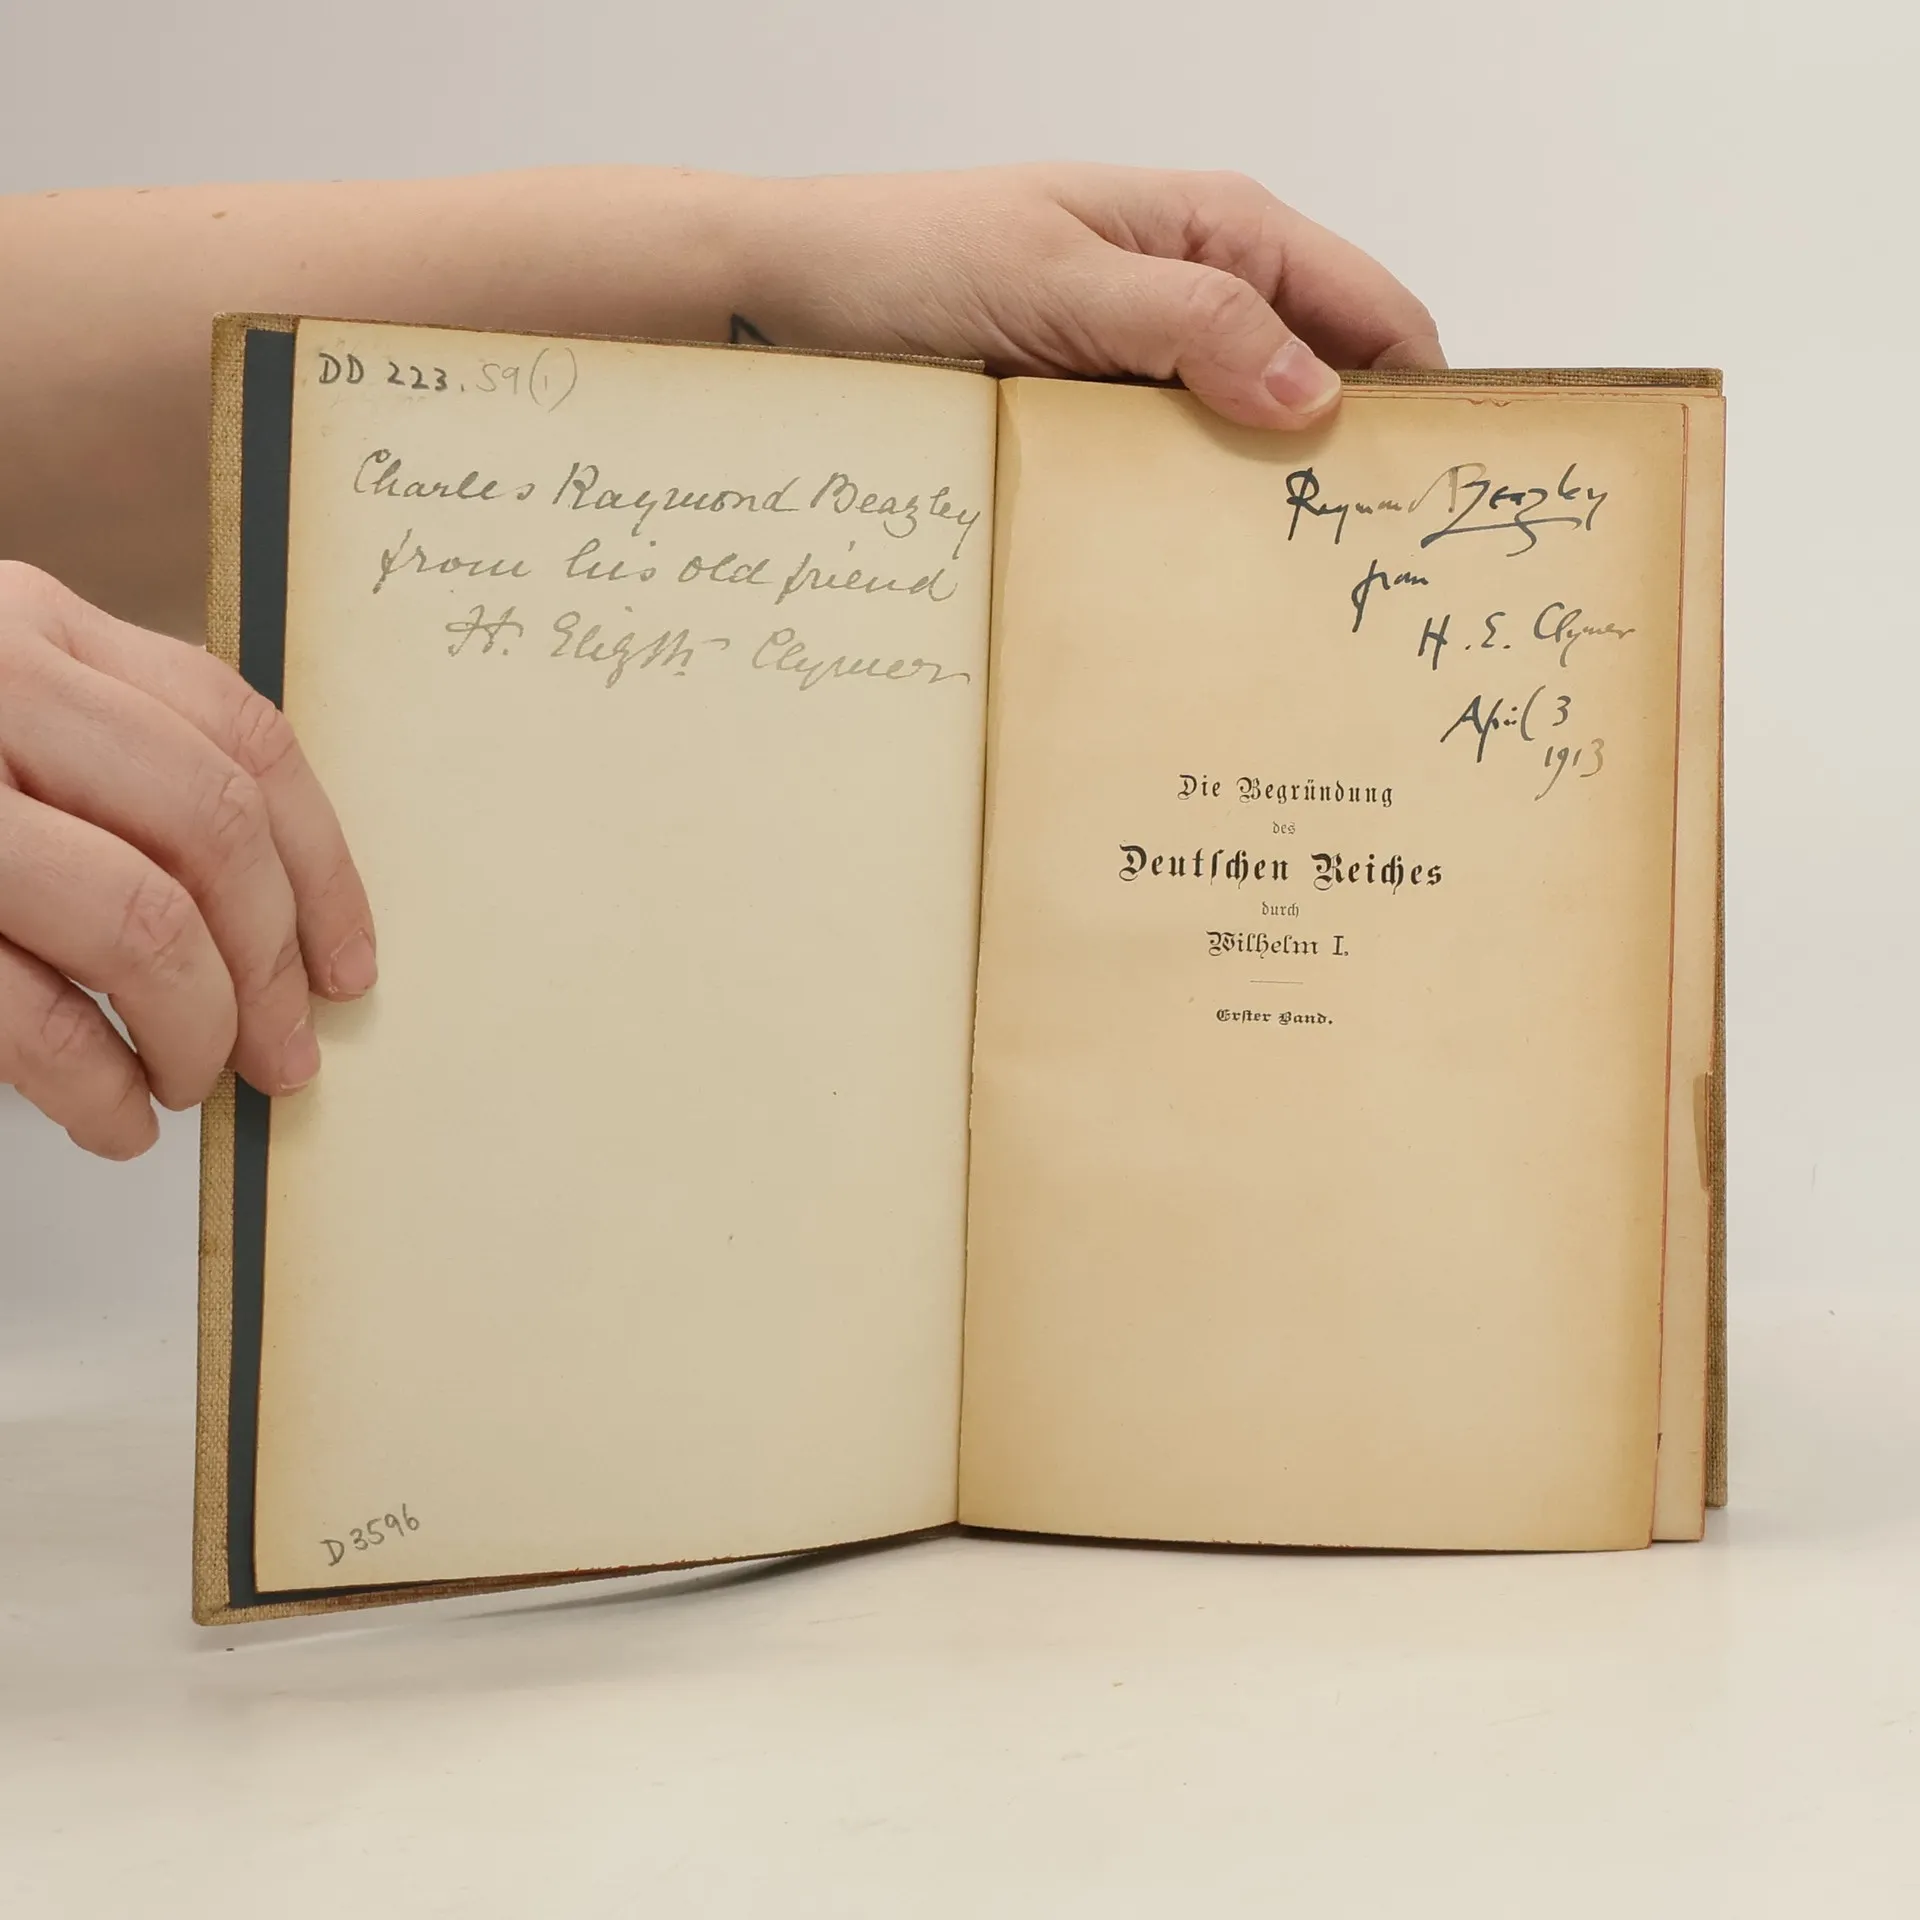 DD 223.S9(1)
Charles Raymond Beazley
from his old friend
H. Elizth Clymer
D3596
Raymond Beazley
from
H. E. Clymer
April 3
1913
Die Begründung
des
Deutſchen Reiches
durch
Wilhelm I.
Erſter Band.